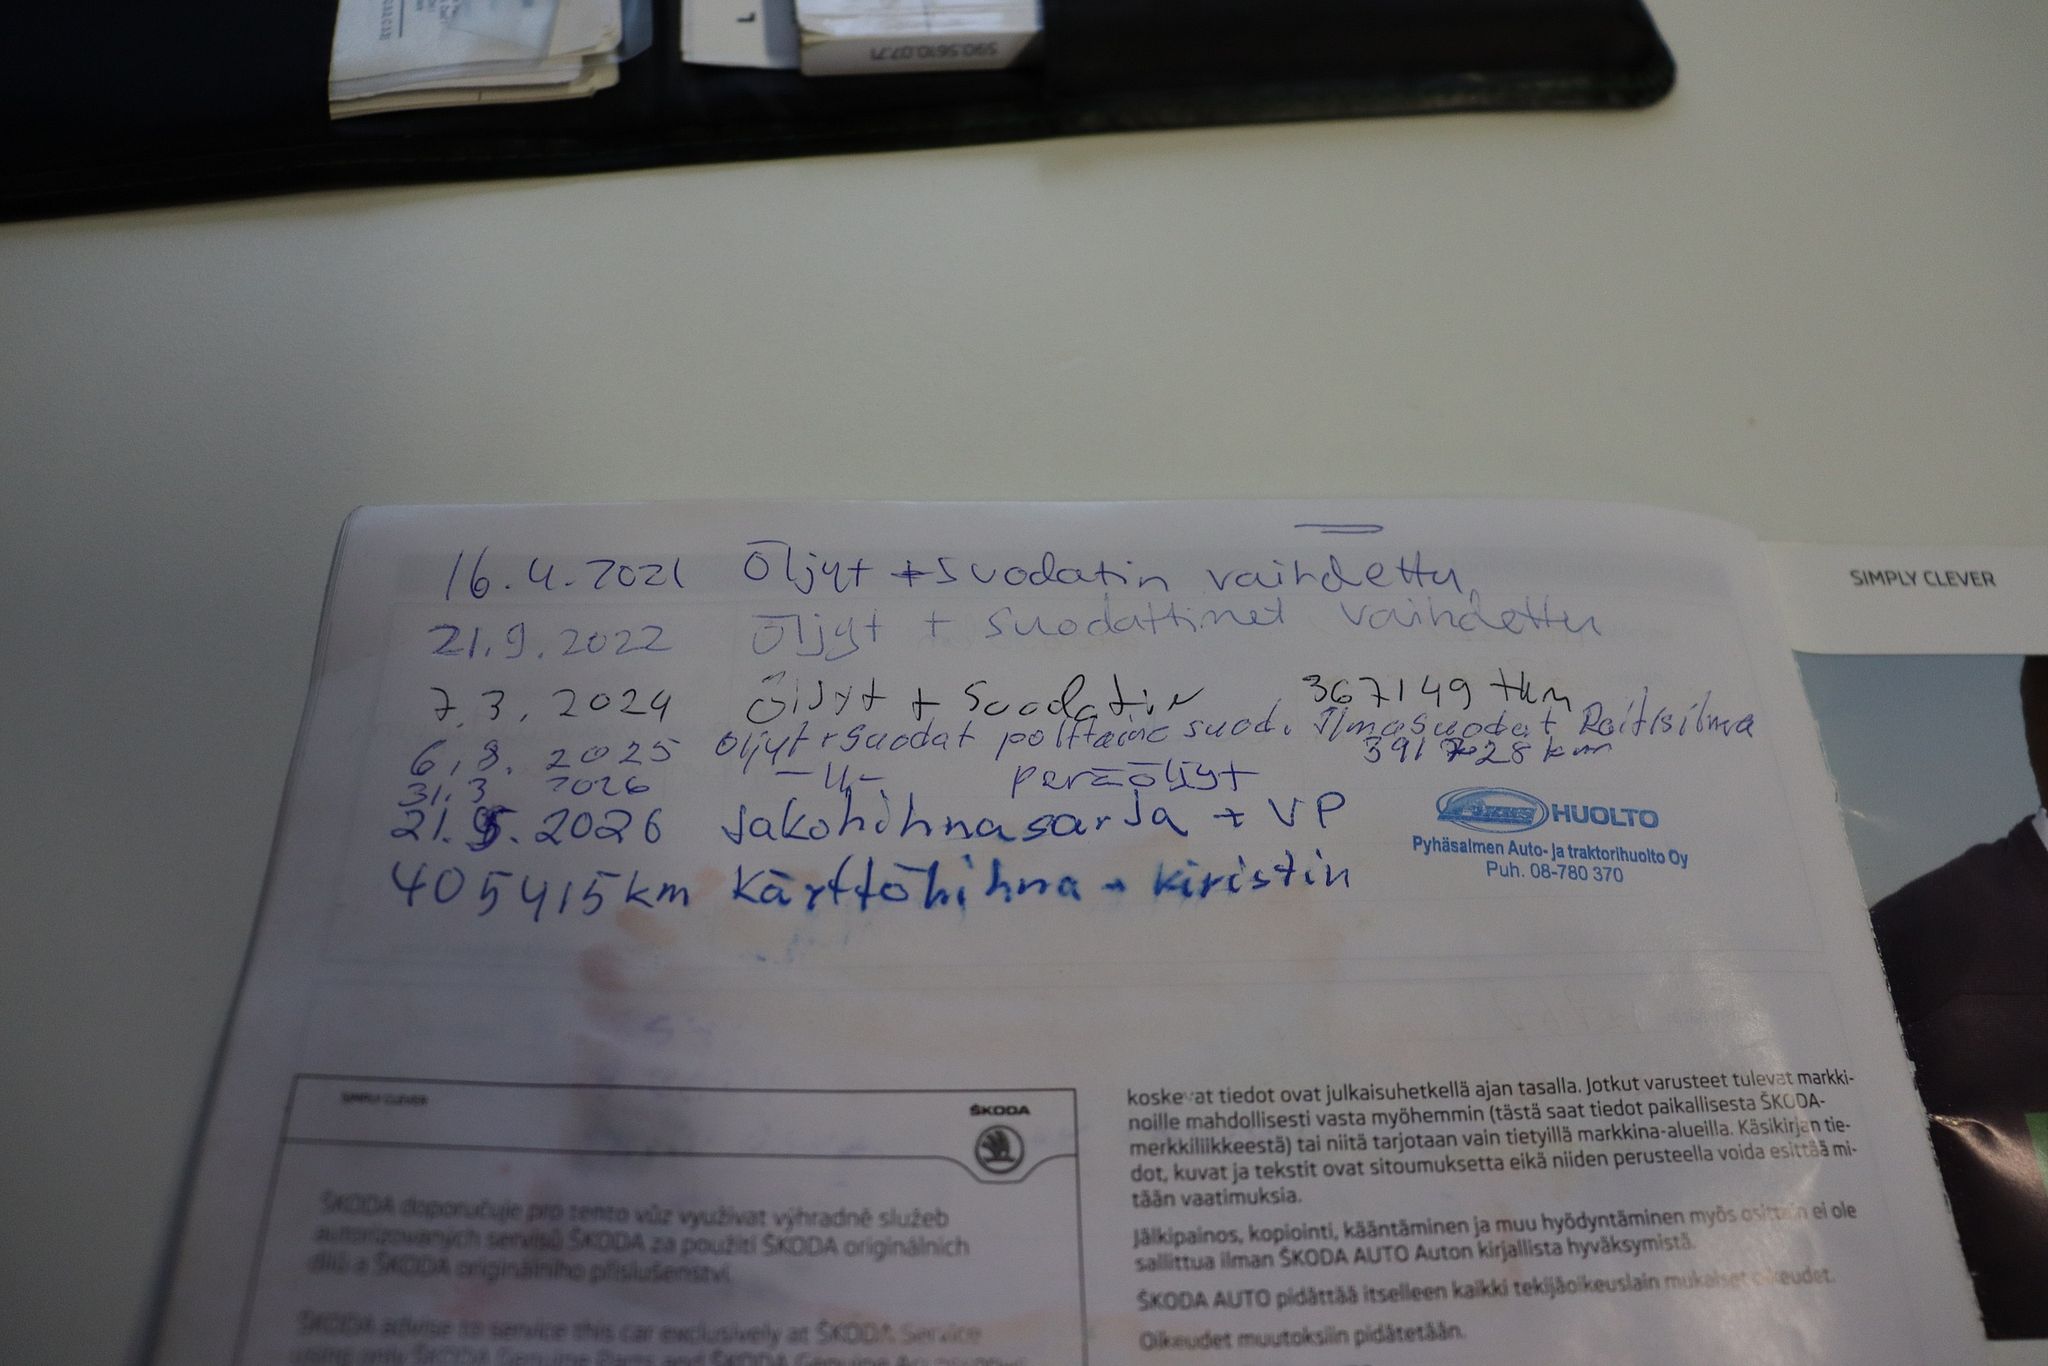 590.5610.07.71
16.4.2021 Öljyt + suodatin vaihdettu
SIMPLY CLEVER
21.9.2022 Öljyt + suodattimet vaihdettu
7.3.2024 Öljyt + Suodatin 367149 tkm
6.8.2025 öljyt + suodat polttaine suod. Ilmasuodat Raitisilma
391728 km
31.3 2026 -11- peräöljyt
21.5.2026 Jakohihnasarja + VP
HUOLTO
405415 km Käyttöhihna + kiristin
Pyhäsalmen Auto- ja traktorihuolto Oy
Puh. 08-780 370
SIMPLY CLEVER
ŠKODA
ŠKODA doporučuje pro tento vůz využívat výhradně služeb
autorizovaných servisů ŠKODA za použití ŠKODA originálních
dílů a ŠKODA originálního příslušenství.
ŠKODA advise to service this car exclusively at ŠKODA Service
koskevat tiedot ovat julkaisuhetkellä ajan tasalla. Jotkut varusteet tulevat markki-
noille mahdollisesti vasta myöhemmin (tästä saat tiedot paikallisesta ŠKODA-
merkkiliikkeestä) tai niitä tarjotaan vain tietyillä markkina-alueilla. Käsikirjan tie-
dot, kuvat ja tekstit ovat sitoumuksetta eikä niiden perusteella voida esittää mi-
tään vaatimuksia.
Jälkipainos, kopiointi, kääntäminen ja muu hyödyntäminen myös osittain ei ole
sallittua ilman ŠKODA AUTO Auton kirjallista hyväksymistä.
ŠKODA AUTO pidättää itselleen kaikki tekijäoikeuslain mukaiset oikeudet.
Oikeudet muutoksiin pidätetään.